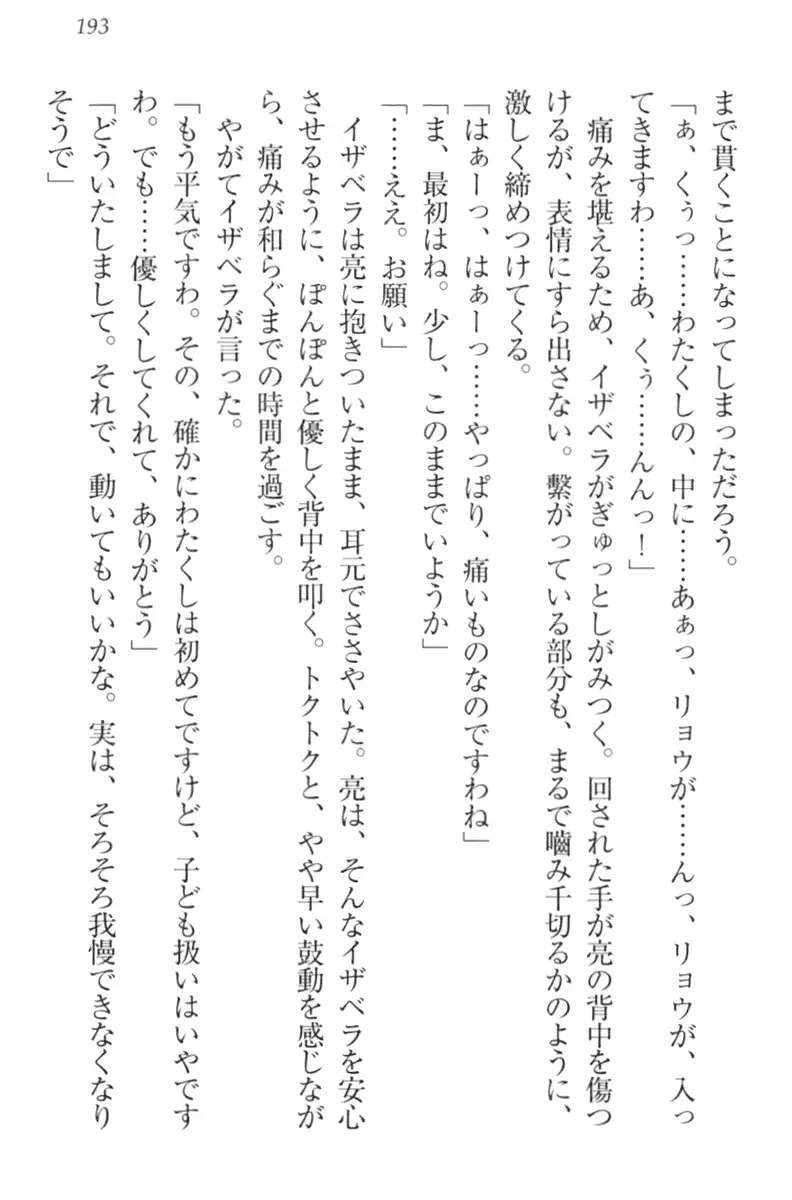 193
まで貫くことになってしまっただろう。
「ぁ、くぅっ……わたくしの、中に……あぁっ、リョウが……んっ、リョウが、入っ
てきますわ……あ、くぅ……んんっ！」
痛みを堪えるため、イザベラがぎゅっとしがみつく。回された手が亮の背中を傷つ
けるが、表情にすら出さない。繋がっている部分も、まるで嚙み千切るかのように、
激しく締めつけてくる。
「はぁーっ、はぁーっ……やっぱり、痛いものなのですわね」
「ま、最初はね。少し、このままでいようか」
「……ええ。お願い」
イザベラは亮に抱きついたまま、耳元でささやいた。亮は、そんなイザベラを安心
させるように、ぽんぽんと優しく背中を叩く。トクトクと、やや早い鼓動を感じなが
ら、痛みが和らぐまでの時間を過ごす。
やがてイザベラが言った。
「もう平気ですわ。その、確かにわたくしは初めてですけど、子ども扱いはいやです
わ。でも……優しくしてくれて、ありがとう」
「どういたしまして。それで、動いてもいいかな。実は、そろそろ我慢できなくなり
そうで」